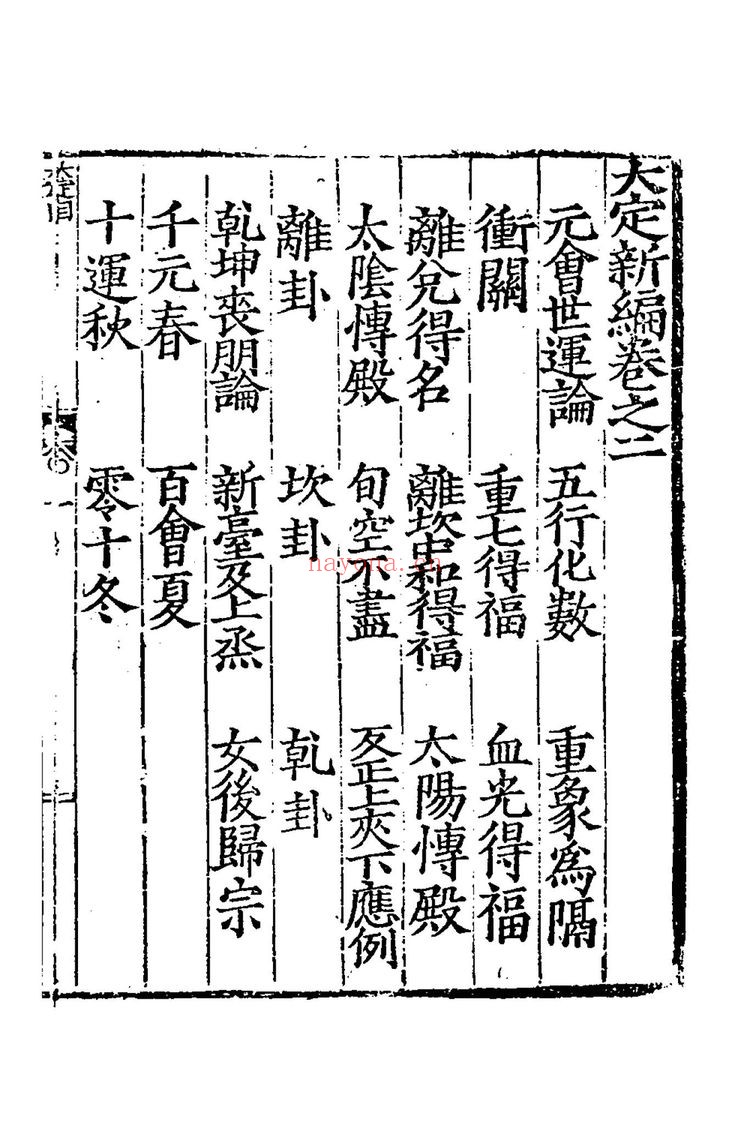 大定新編卷之二
元會世運論 五行化數 重象爲隔
衝關 重七得福 血光得福
離兌得名 離坎中和得福 太陽慱殿
太陰慱殿 旬空不盡 反正上夾下應例
離卦 坎卦 乾卦
乾坤喪朋論 新臺及上烝 女後歸宗
千元春 百會夏
十運秋 零十冬
nayona.cn